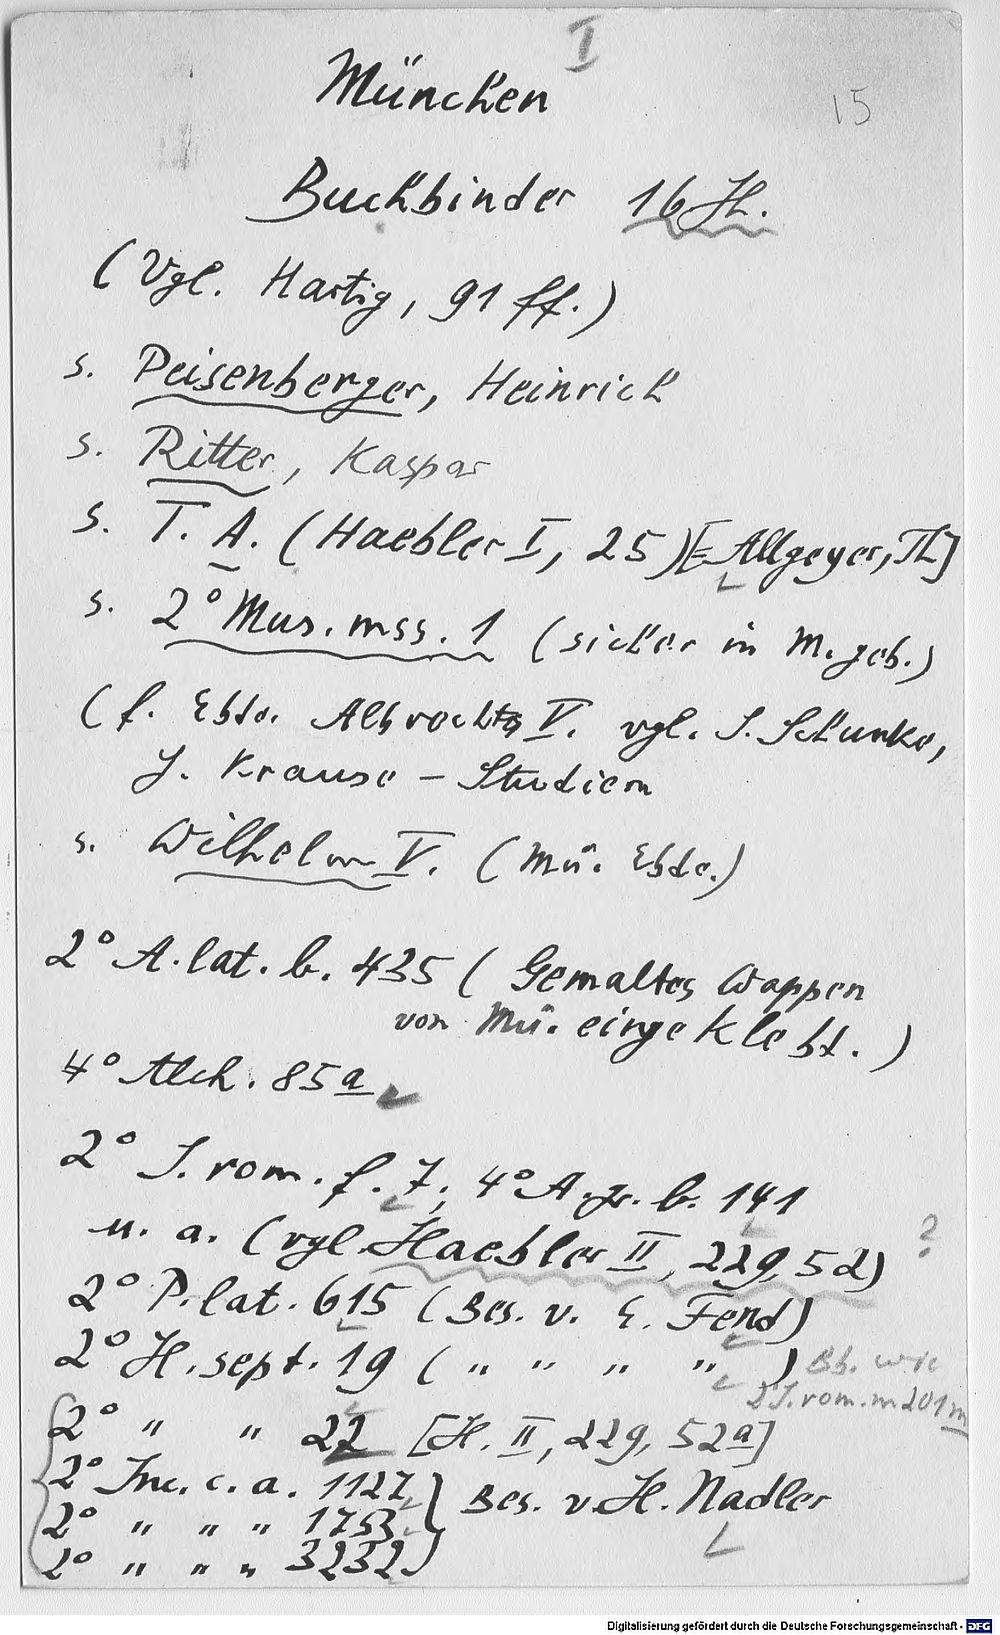 I
München
15
Buchbinder 16 Jh.
(Vgl. Hartig, 91 ff.)
s. Peisenberger, Heinrich
s. Ritter, Kaspar
s. T. A. (Haebler I, 25) [= Allgeyer, Th]
s. 2° Mus. mss. 1 (sicher in M. geb.)
(f. Ebde. Albrechts V. vgl. I. Schunke,
J. Krause - Studien
s. Wilhelm V. (Mü. Ebde.)
2° A. lat. b. 435 (Gemaltes Wappen
von Mü. eingeklebt.)
4° Alch. 85a
2° J. rom. f. 7; 4° A. gr. b. 141
u. a. (vgl. Haebler II, 229, 52) ?
2° P. lat. 615 (Bes. v. E. Fend)
2° H. sept. 19 ( " " " " ) Bb. wie
2° J. rom. m 201m
2° " " 22 [H. II, 229, 52a]
2° Inc. c. a. 1127
2° " " " 1753 } Bes. v. H. Nadler
2° " " " 3232
Digitalisierung gefördert durch die Deutsche Forschungsgemeinschaft - DFG